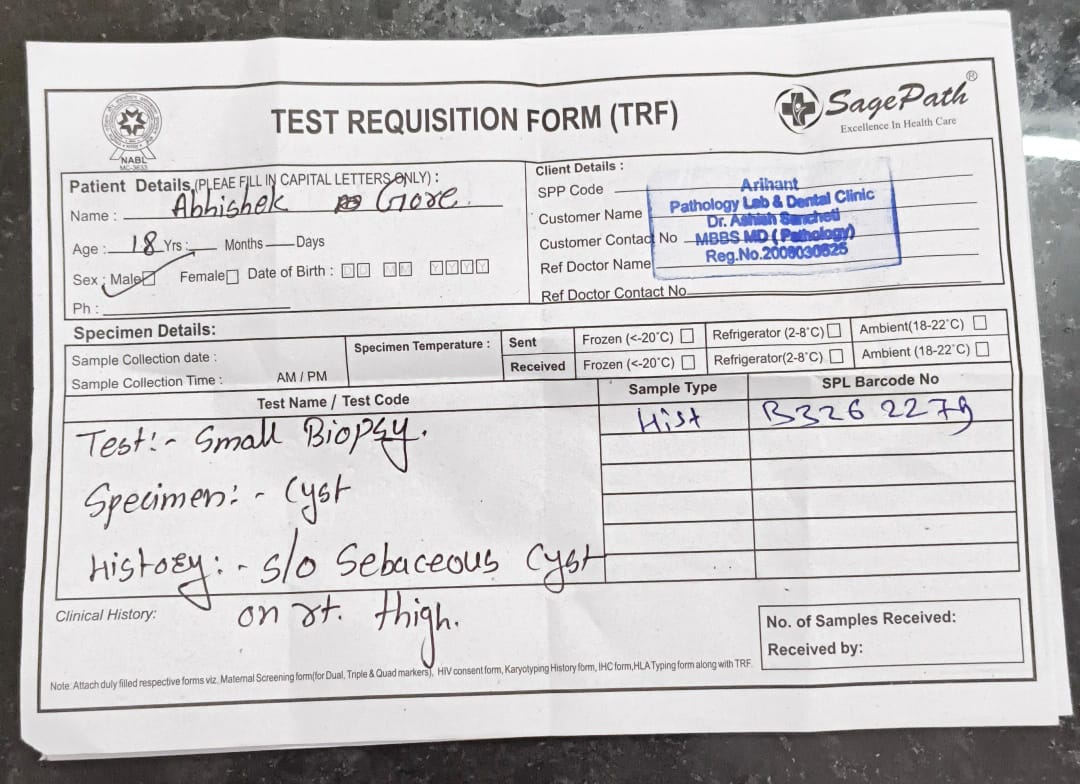 NABL
MC-3633
TEST REQUISITION FORM (TRF)
SagePath®
Excellence In Health Care
Patient Details (PLEAE FILL IN CAPITAL LETTERS ONLY) :
Name : Abhishek Gore.
Age : 18 Yrs : Months Days
Sex : Male Female Date of Birth : D D M M Y Y Y Y
Ph :
Client Details :
SPP Code
Customer Name
Customer Contact No
Ref Doctor Name
Ref Doctor Contact No
Arihant
Pathology Lab & Dental Clinic
Dr. Ashish Sancheti
MBBS MD (Pathology)
Reg.No.2006030625
Specimen Details:
Sample Collection date :
Sample Collection Time : AM / PM
Specimen Temperature :
Sent Frozen (<-20°C) Refrigerator (2-8°C) Ambient(18-22°C)
Received Frozen (<-20°C) Refrigerator(2-8°C) Ambient (18-22°C)
Test Name / Test Code Sample Type SPL Barcode No
Hist B3262279
Test:- Small Biopsy.
Specimen:- Cyst
History:- s/o Sebaceous Cyst
on rt. thigh.
Clinical History:
No. of Samples Received:
Received by:
Note: Attach duly filled respective forms viz. Maternal Screening form(for Dual, Triple & Quad markers), HIV consent form, Karyotyping History form, IHC form,HLA Typing form along with TRF.